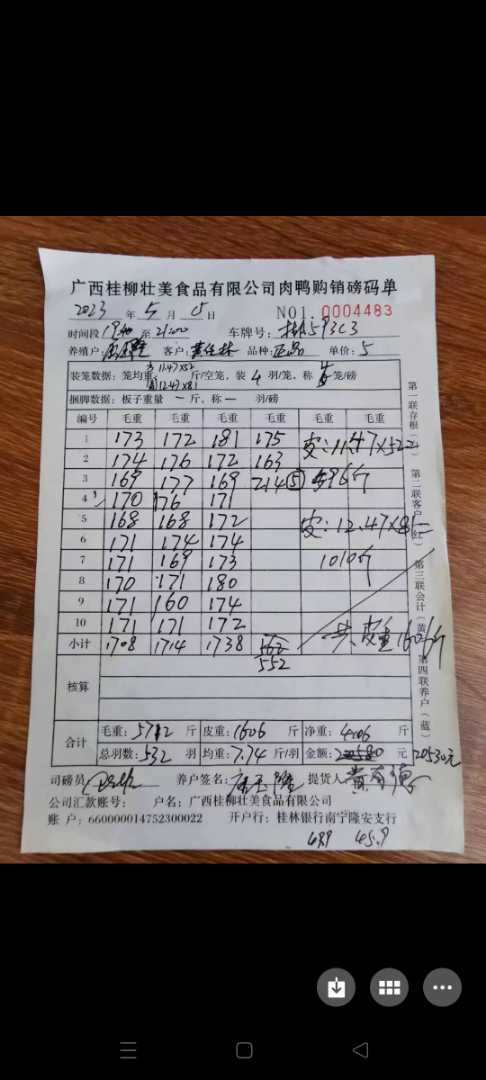 广西桂柳壮美食品有限公司肉鸭购销磅码单
2023 年 5 月 日 NO1. 0004483
时间段 19:40 至 21:00 车牌号: 593C3
养殖户: 客户: 品种: 正品 单价: 5
11.47×52
12.47×81
装笼数据: 笼均重: 斤/空笼, 装 4 羽/笼, 称 笼/磅
捆脚数据: 板子重量 一 斤, 称 一 羽/磅
编号 毛重 毛重 毛重 毛重 毛重 毛重
1 173 172 181 175 皮: 11.47×52=
2 174 176 172 163
3 169 177 169 214⑤ 596斤
4 170 176 171
5 168 168 172 皮: 12.47×81=
6 171 174 174
7 171 169 173 1010斤
8 170 171 180
9 171 160 174
10 171 171 172
小计 1708 1714 1738 552 共皮重1606斤
核算
合计 毛重: 5712 斤 皮重: 1606 斤 净重: 4106 斤
总羽数: 532 羽 均重: 7.74 斤/羽 金额: 元 20530元
司磅员 养户签名: 提货人
公司汇款账号: 户名: 广西桂柳壮美食品有限公司
账 户: 660000014752300022 开户行: 桂林银行南宁隆安支行
45.9
第一联存根(白) 第二联客户(红) 第三联会计(黄) 第四联养户(蓝)